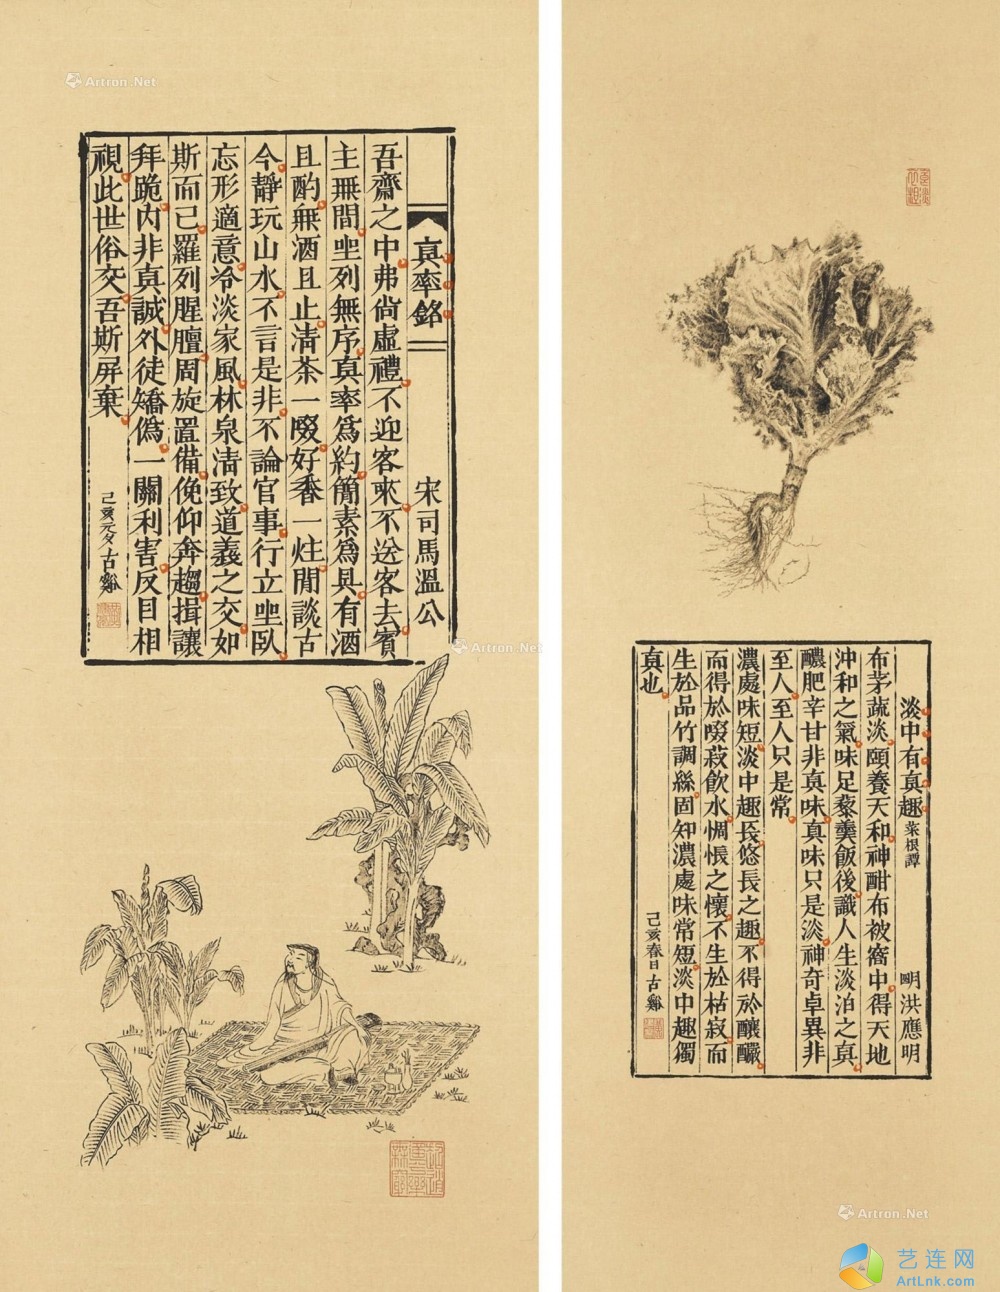 真率銘 宋司馬溫公
吾齋之中弗尚虛禮不迎客來不送客去賓
主無間坐列無序真率為約簡素為具有酒
且酌無酒且止清茶一啜好香一炷閒談古
今靜玩山水不言是非不論官事行立坐臥
忘形適意冷淡家風林泉清致道義之交如
斯而已羅列腥膻周旋置備俛仰奔趨揖讓
拜跪內非真誠外徒矯偽一關利害反目相
視此世俗交吾斯屏棄
己亥元夕古谿
淡中有真趣 菜根譚 明洪應明
布茅蔬淡頤養天和神酣布被窩中得天地
沖和之氣味足藜羹飯後識人生淡泊之真
醲肥辛甘非真味真味只是淡神奇卓異非
至人至人只是常
濃處味短淡中趣長悠長之趣不得於釀釅
而得於啜菽飲水惆悵之懷不生於枯寂而
生於品竹調絲固知濃處味常短淡中趣獨
真也
己亥春日古谿
Artron.Net
Artron.Net
Artron.Net
艺连网
ArtLnk.com